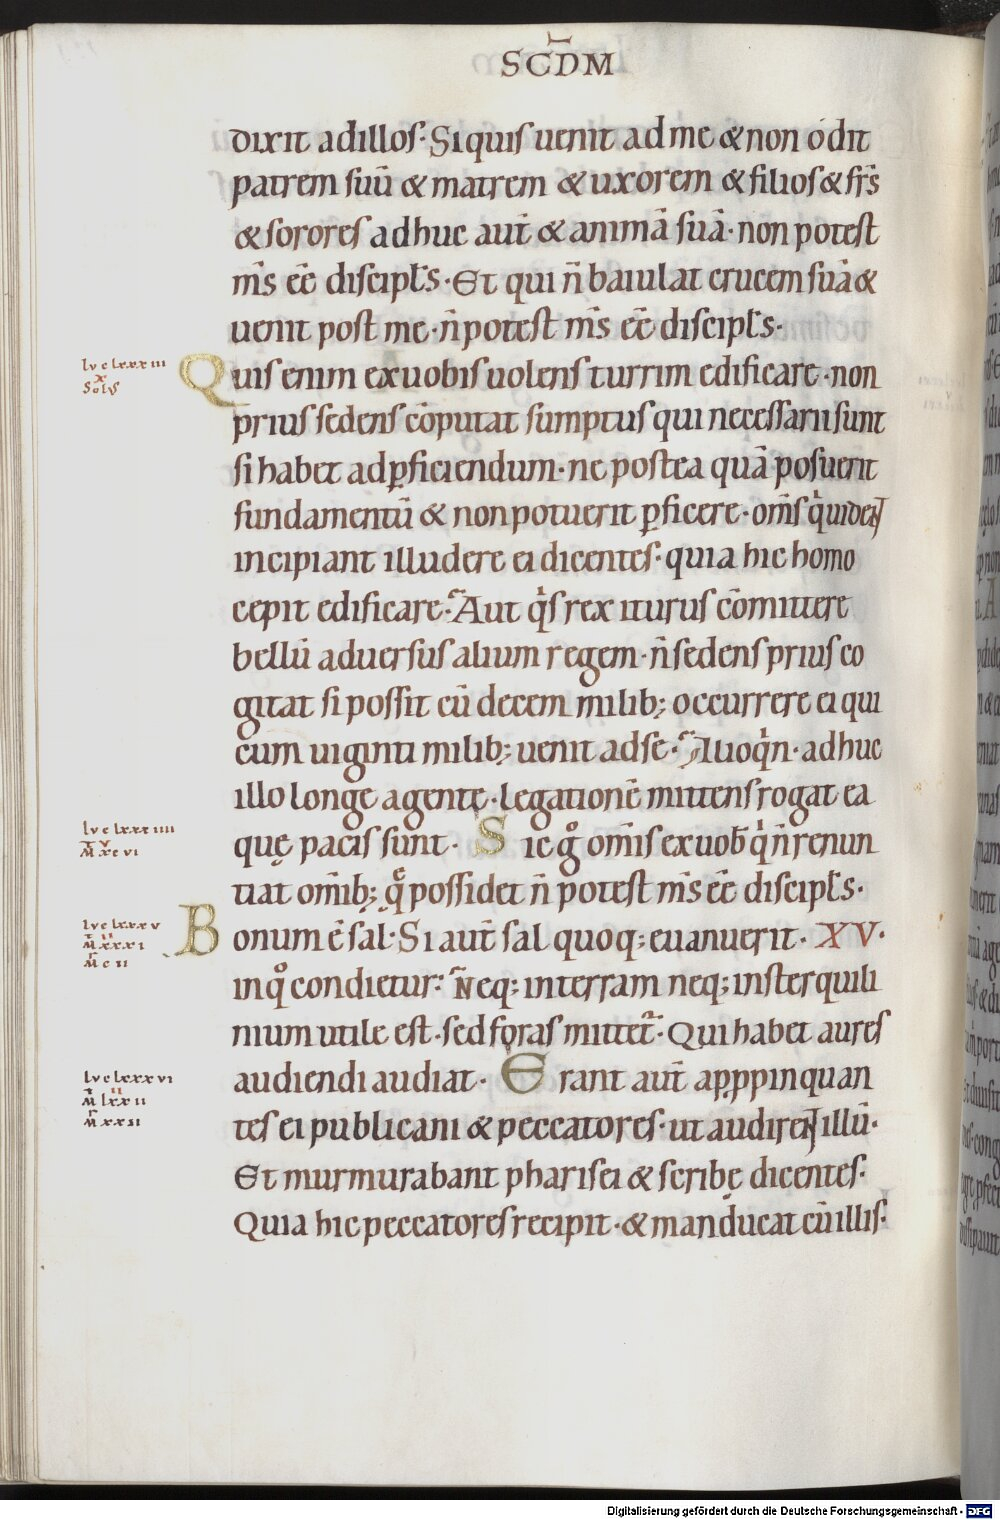 SCD̄M
dixit ad illos· Si quis uenit ad me & non ódit
patrem suū & matrem & uxorem & filios & fr̄s
& sorores adhuc aut̄ & animā suā· non potest
m̄s eē discipl̄s· Et qui n̄ baiulat crucem suā &
uenit post me· n̄ potest m̄s eē discipl̄s·
lvc lxxxiii
x
Solꝰ
Quis enim ex uobis uolens turrim edificare· non
prius sedens cōputat sumptus qui necessarii sunt
si habet ad ꝑficiendum· ne postea quā posuerit
fundamentū & non potuerit ꝑficere· om̄s qͥ uident
incipiant illudere ei dicentes· quia hic homo
cepit edificare· Aut qͥs rex iturus cōmittere
bellū aduersus alium regem· n̄ sedens prius co
gitat si possit cū decem milib; occurrere ei qui
cum uiginti milib; uenit ad se· Alioqͥn· adhuc
illo longe agente· legationē mittens rogat ea
lvc lxxxiiii
M xcvi
quę pacis sunt· Sic gͦ omīs ex uob̄ qͥ n̄ renun
tiat om̄ib; q̨ͦ possidet n̄ potest m̄s eē discipl̄s·
lvc lxxxv
M xxxi
M cii
Bonum ē sal· Si aut̄ sal quoq; euanuerit· XV·
in qͦ condietur· N̄eq; in terram neq; in sterquili
nium utile est· sed foras mittet᷑· Qui habet aures
lvc lxxxvi
M lxxii
M xxii
audiendi audiat· Erant aut̄ appꝓpinquan
tes ei publicani & peccatores· ut audirent illū·
Et murmurabant pharisei & scribę dicentes·
Quia hic peccatores recipit· & manducat cū illis·
Digitalisierung gefördert durch die Deutsche Forschungsgemeinschaft - DFG